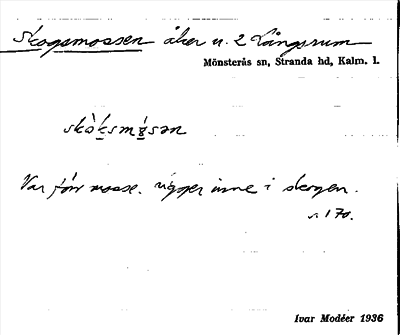 Skogsmossen åker u. 2 Långsrum
Mönsterås sn, Stranda hd, Kalm. l.
skò̀ksmɷ́sən
Var förr mosse. Ligger inne i skogen.
s. 170.
Ivar Modéer 1936